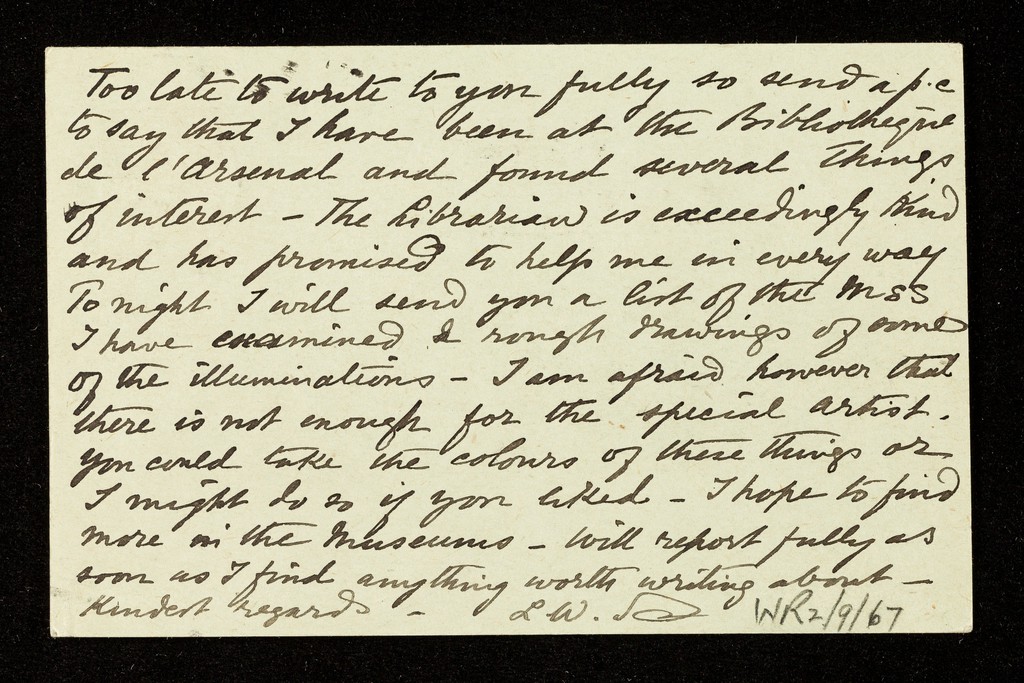 Too late to write to you fully so send a p.c
to say that I have been at the Bibliothegue
de l'Arsenal and found several things
of interest - The Librarian is exceedingly kind
and has promised to help me in every way
To night I will send you a list of the MSS
I have examined & rough drawings of some
of the illuminations - I am afraid however that
there is not enough for the special artist.
You could take the colours of these things or
I might do so if you liked - I hope to find
more in the Museums - Will report fully as
soon as I find anything worth writing about -
Kindest regards - L.W.
WR2/9/67